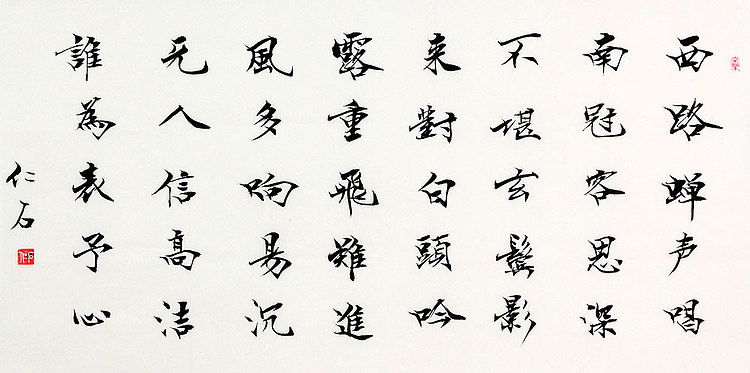 西路蝉声唱
南冠客思深
不堪玄鬓影
来對白頭吟
露重飛難進
風多响易沉
无人信高洁
誰為表予心
仁石